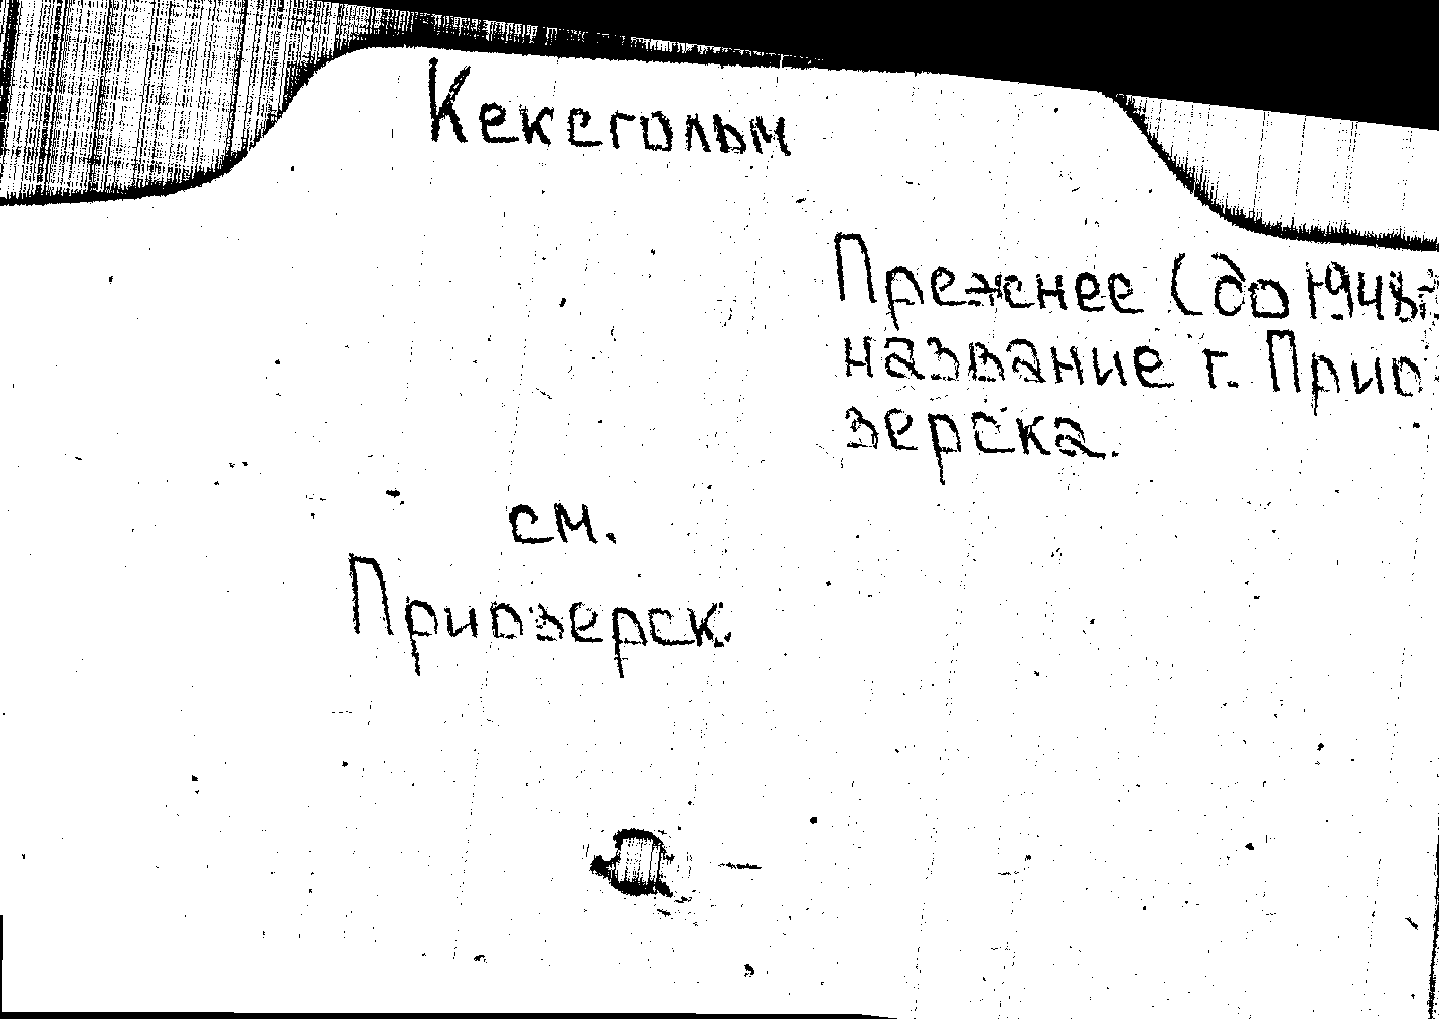 Кексгольм
Прежнее (до 1948г.
название г. Прио-
зерска.
см.
Приозерск.